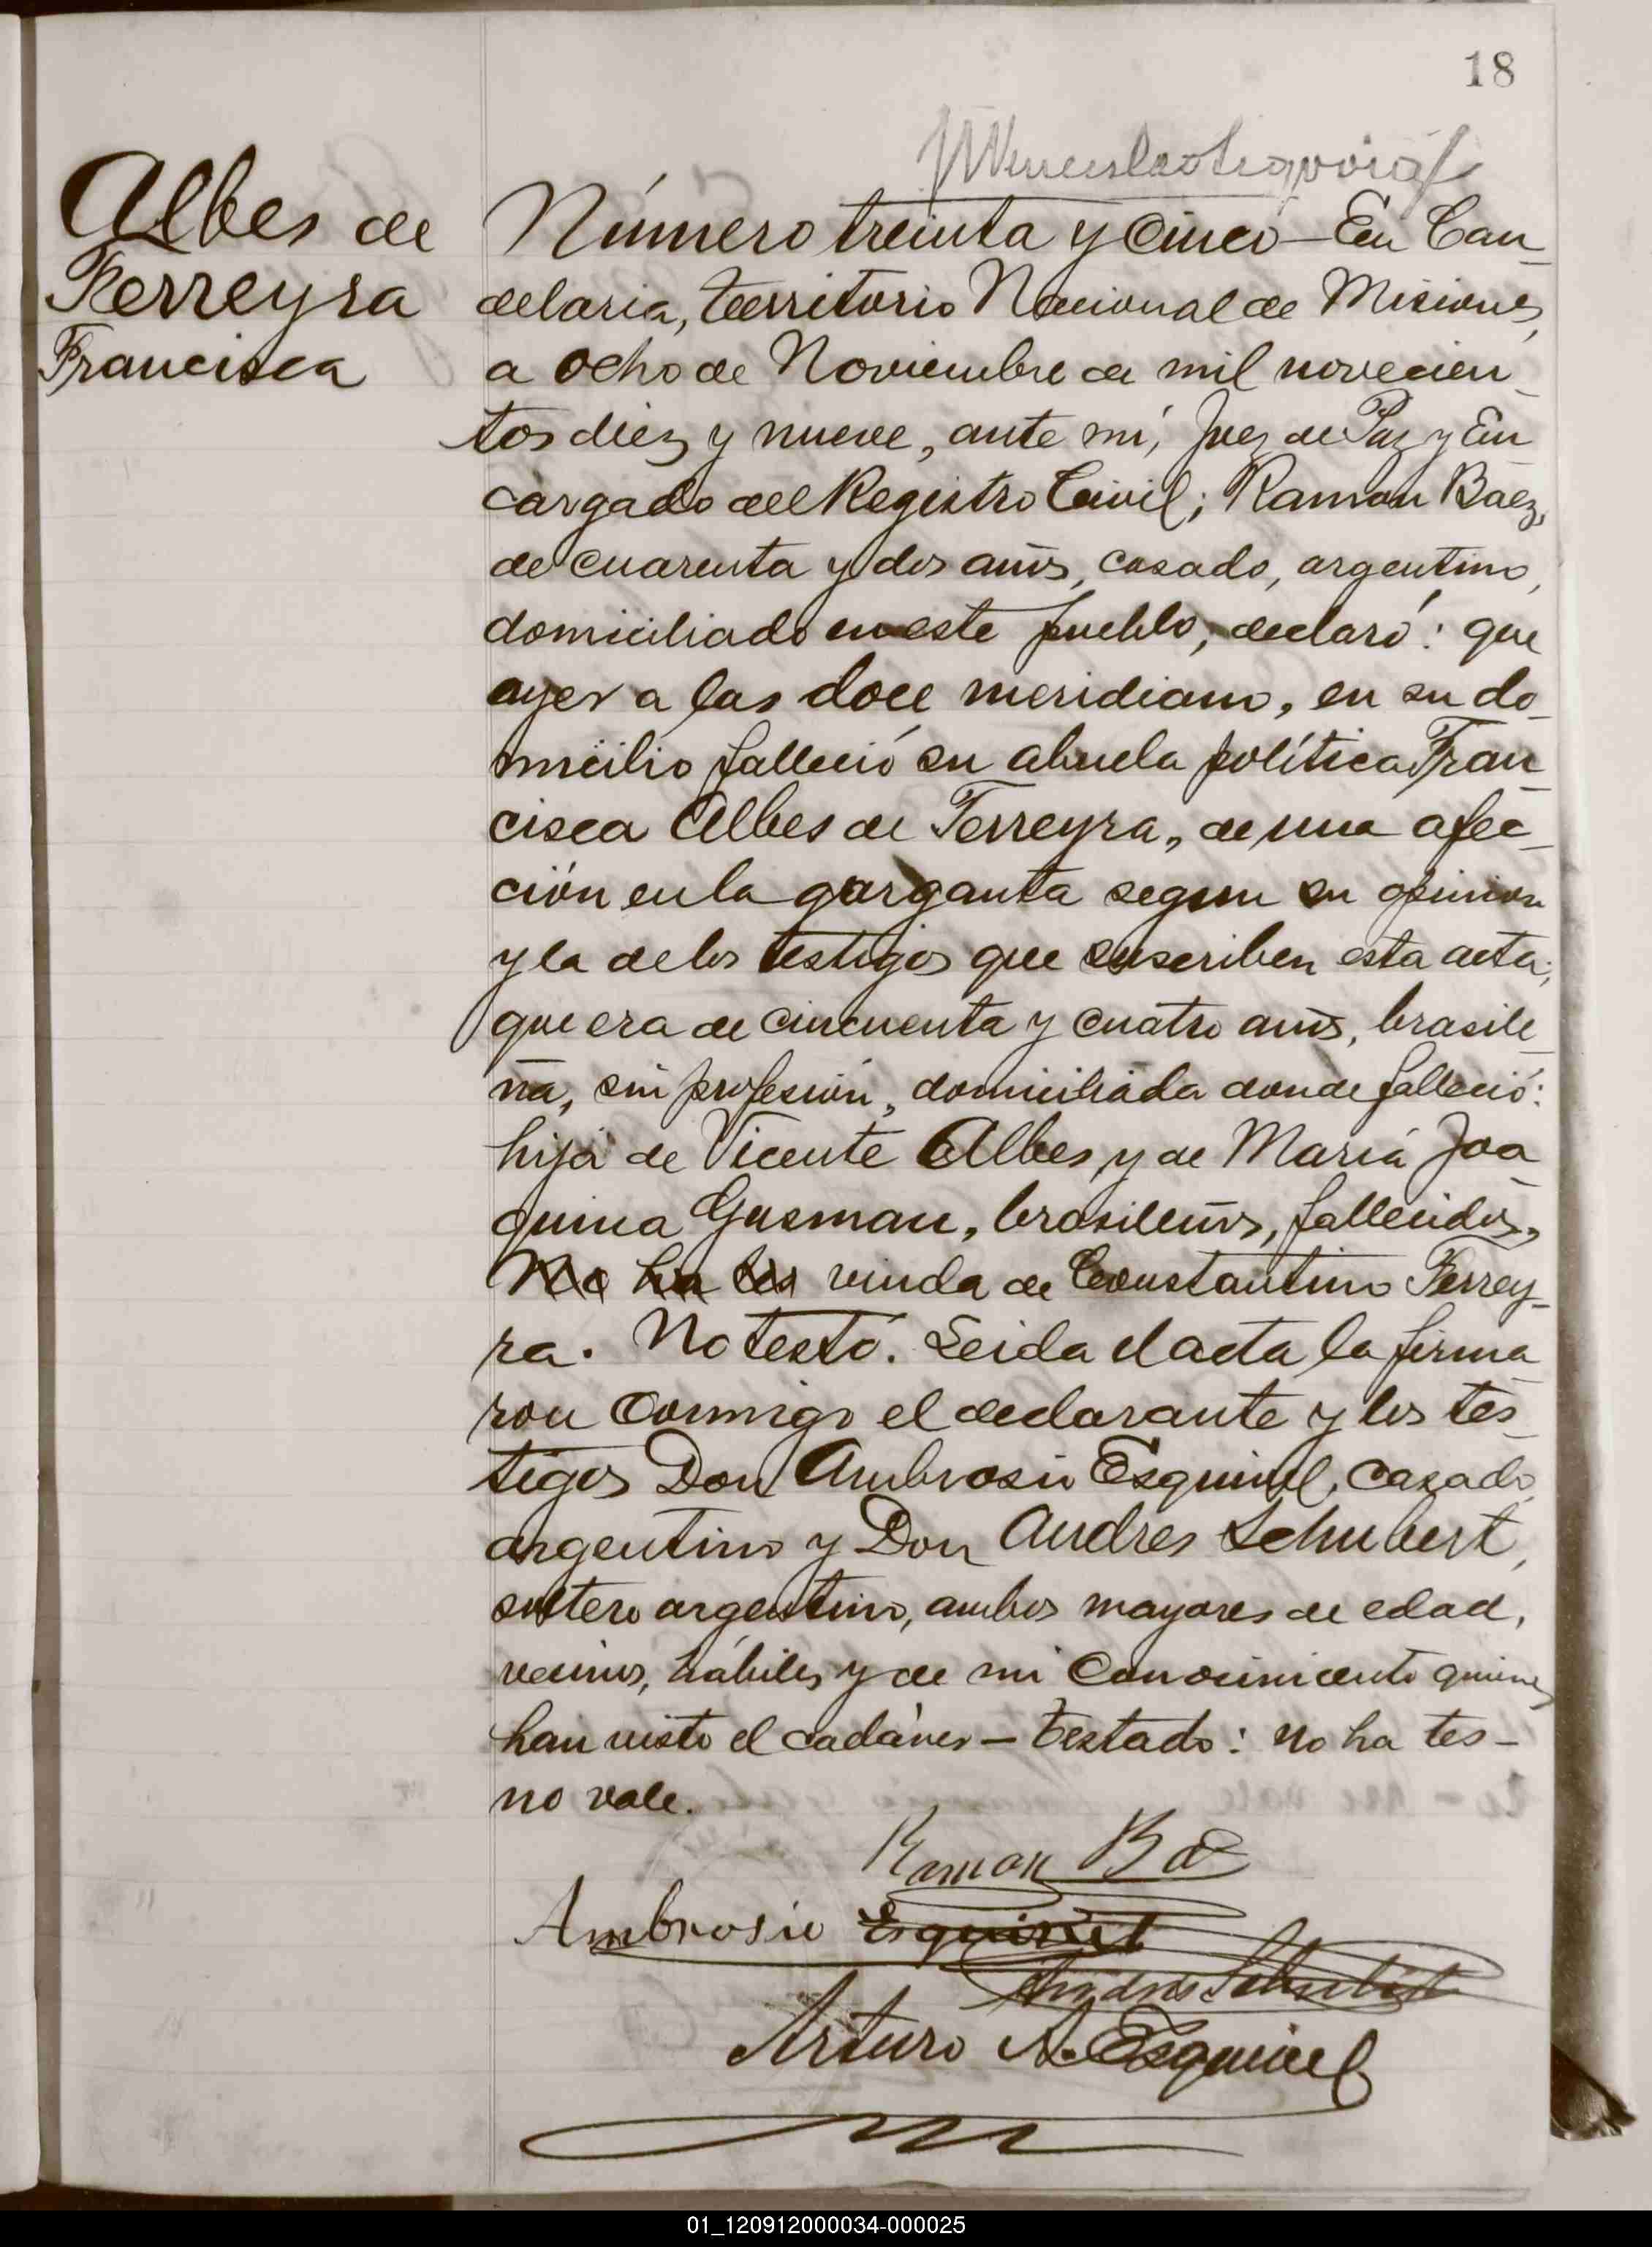 18
Albes de
Ferreyra
Francisca
Número treinta y cinco — En Can_
delaria, Territorio Nacional de Misiones,
a ocho de Noviembre de mil novecien_
tos diez y nueve, ante mí, Juez de Paz y En
cargado del Registro Civil; Ramon Báez,
de cuarenta y dos años, casado, argentino,
domiciliado en este pueblo, declaró: que
ayer a las doce meridiano, en su do_
micilio falleció su abuela política Fran_
cisca Albes de Ferreyra, de una afec_
ción en la garganta segun su opinion
y la de los testigos que suscriben esta acta;
que era de cincuenta y cuatro años, brasile_
ña, sin profesión, domiciliada donde falleció:
hija de Vicente Albes y de María Joa
quina Gusman, brasileños, fallecidos,
No ha tes viuda de Constantino Ferrey_
ra. No testó. Leida el acta la firma
ron conmigo el declarante y los tes_
tigos Don Ambrosio Esquivel, casado,
argentino y Don Andres Schubert,
soltero argentino, ambos mayores de edad,
vecinos, hábiles y de mi conocimiento quienes
han visto el cadáver — Testado: no ha tes —
no vale.
Ramon Baez
Ambrosio Esquivel
Andres Schubert
Arturo A. Esquivel
01_120912000034-000025